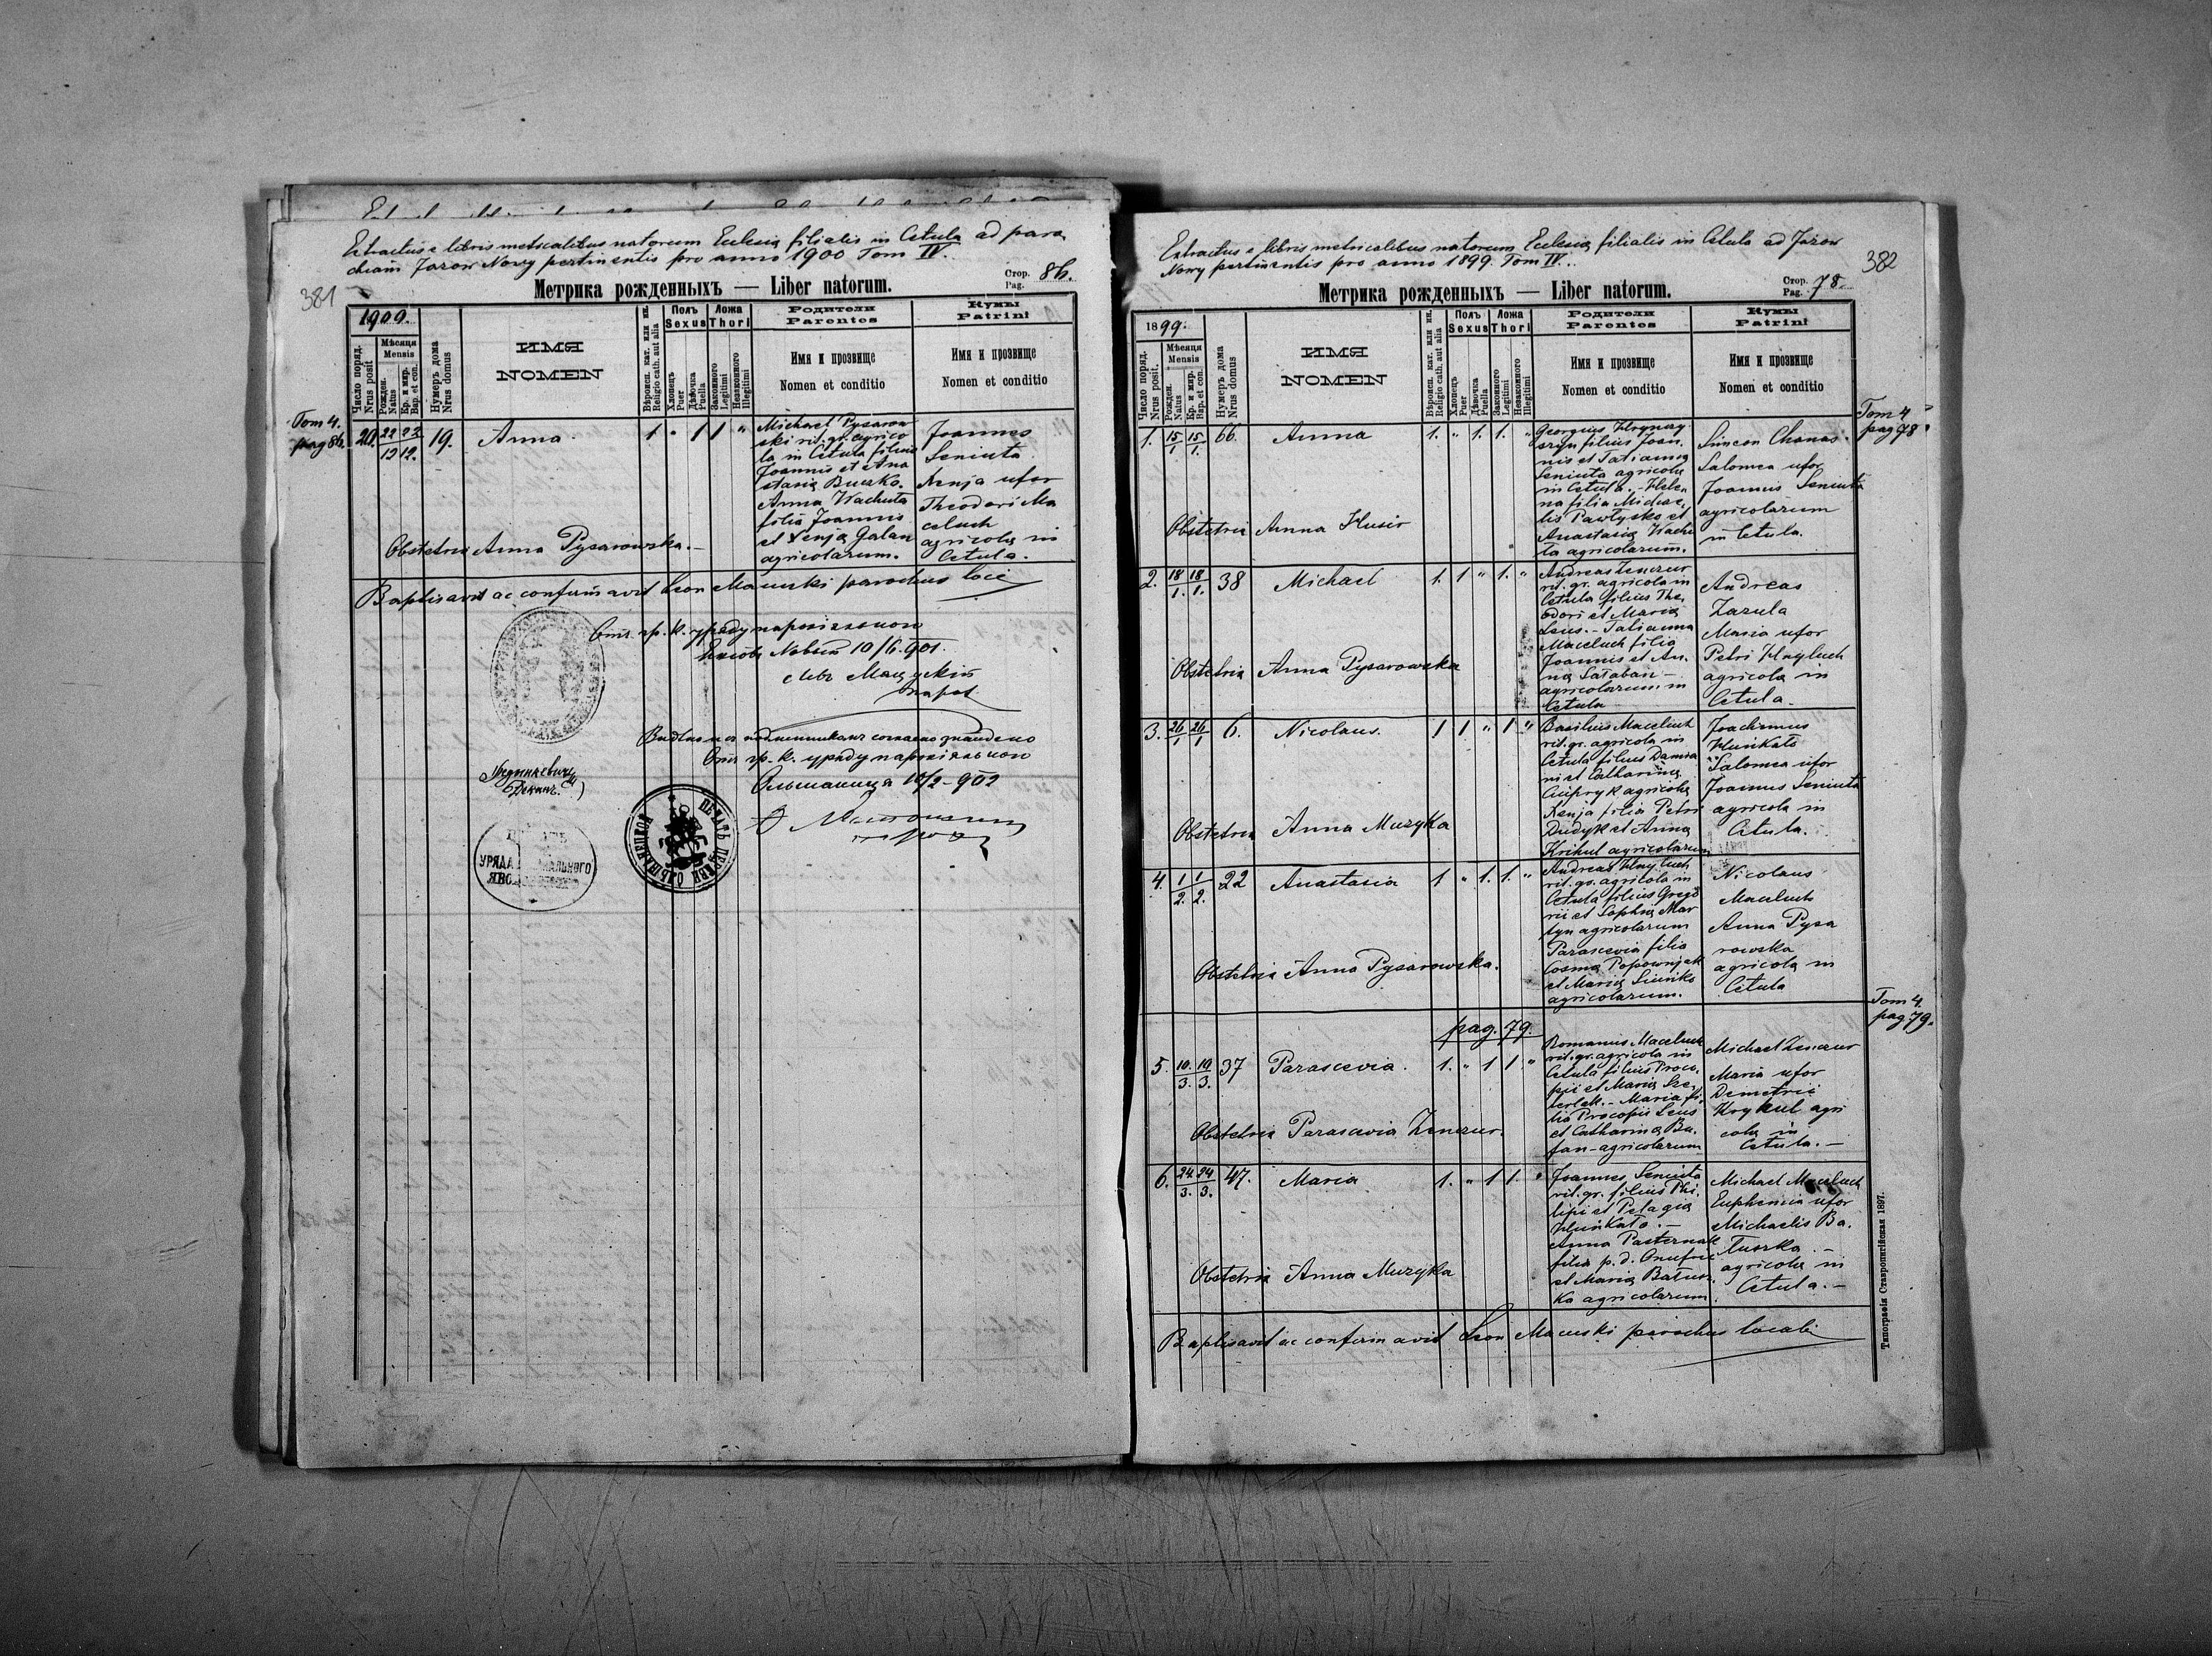 Extractus e libris metricalibus natorum Ecclesia filialis in Cetula ad paro
chiam Jazow Nowy pertinentis pro anno 1900 Tom IV.
381
Метрика рожденныхъ — Liber natorum.
Стор.
Pag. 86.
1900.
Число поряд.
Nrus posit
Мѣсяця
Mensis
Рожден.
Natus
Кр. и мир.
Bap. et con.
Нумеръ дома
Nrus domus
ИМЯ
NOMEN
Вѣроисп. кат. или ин.
Religio cath. aut alia
Полъ
Sexus
Хлопець
Puer
Дѣвочка
Puella
Ложа
Thori
Законного
Legitimi
Незаконного
Illegitimi
Родители
Parentes
Имя и прозвище
Nomen et conditio
Кумы
Patrini
Имя и прозвище
Nomen et conditio
Tom 4.
pag 86.
20. 22/12 23/12. 19. Anna. 1 " 1 1 "
Michael Pysarow
ski rit. gr. agrico
la in Cetula filius
Joannis et Ana
stasia Buczko.
Anna Wachuta
filia Joannis
et Xenja Galan
agricolarum.
Joannes
Seniuta
Xenja uxor
Theodori Ma
celuch
agricola in
Cetula.
Obstetrix Anna Pysarowska.
Baptisavit ac confirmavit Leon Macuski parochus loci
От гр. к. уряду парохіяльного
Язовъ Новый 10/6. 901.
Левъ Мацускій
парох
гр. к. уряду парохіяльного
Ольшаниця 10/2 - 902
Деканъ.
УРЯДА
ПЕЧАТЬ ЦЕРКВИ ОЛЬШАНЕЦКОЙ
Extractus e libris metricalibus natorum Ecclesia filialis in Cetula ad Jazow
Nowy pertinentis pro anno 1899. Tom IV.
382
Метрика рожденныхъ — Liber natorum.
Стор.
Pag. 78.
1899.
Число поряд.
Nrus posit.
Мѣсяця
Mensis
Рожден.
Natus
Кр. и мир.
Bap. et con.
Нумеръ дома
Nrus domus
ИМЯ
NOMEN
Вѣроисп. кат. или ин.
Religio cath. aut alia
Полъ
Sexus
Хлопець
Puer
Дѣвочка
Puella
Ложа
Thori
Законного
Legitimi
Незаконного
Illegitimi
Родители
Parentes
Имя и прозвище
Nomen et conditio
Кумы
Patrini
Имя и прозвище
Nomen et conditio
Tom 4
pag 78
1. 15/1 15/1. 66. Anna 1. " 1. 1. "
Georgius Hrynay
filius Joan
nis et Tatianna
Seniuta agricola
in Cetula. - Hele
na filia Michae
lis Pawtysko et
Anastasia Wachu
ta agricolarum.
Simeon Chanas.
Salomea uxor
Joannis Seniuta
agricolarum
in Cetula.
Obstetrix Anna Husir
2. 18/1. 18/1. 38 Michael 1. 1 " 1. "
Andreas Zenczur
rit. gr. agricola in
Cetula filius The
odori et Maria
Leus. - Tatianna
Maceluch filia
Joannis et An
na Sataban -
agricolarum in
Cetula
Andreas
Zazula
Maria uxor
Petri Hnyluch
agricola in
Cetula.
Obstetrix Anna Pysarowska
3. 26/1 26/1 6. Nicolaus. 1 1 " 1 "
Basilius Maceluch
rit. gr. agricola in
Cetula filius Damia
ni et Catharina
Ciupryk agricola
Xenja filia Petri
Dudyk et Anna
Krikul agricolarum
Joachimus
Huńkato
Salomea uxor
Joannis Seniuta
agricola in
Cetula.
Obstetrix Anna Muzyka
4. 1/2. 1/2. 22 Anastasia 1 " 1. 1. "
Andreas Hnyluch
rit. gr. agricola in
Cetula filius Grego
rii et Sophia Mar
tyn agricolarum
Parascevia filia
Cosma Popownjak
et Maria Siuńko
agricolarum.
Nicolaus
Maceluch
Anna Pysa
rowska
agricola in
Cetula
Obstetrix Anna Pysarowska.
pag. 79.
Tom 4.
pag 79.
5. 10./3. 19/3. 37 Parascevia. 1. " 1 1 "
Romanus Maceluch
rit. gr. agricola in
Cetula filius Proco
pii et Maria Sze
terlak. - Maria fi
lia Procopii Leus
et Catharina Ba
fan - agricolarum
Michael Zenczur
Maria uxor
Demetrii
Krykul agri
cola in
Cetula. -
Obstetrix Parascevia Zenczur.
6. 24/3. 24/3. 47. Maria 1. " 1 1. "
Joannes Seniuta
rit. gr. filius Phi
lipi et Pelagia
Huńkato. -
Anna Pasternak
filia p. d. Onufrii
et Maria Batusz
ka agricolarum.
Michael Maceluch
Euphemia uxor
Michaelis Ba
tuszka. -
agricola in
Cetula. -
Obstetrix Anna Muzyka
Baptisavit ac confirmavit Leon Macuski parochus localis
Типографія Ставропигійская 1897.